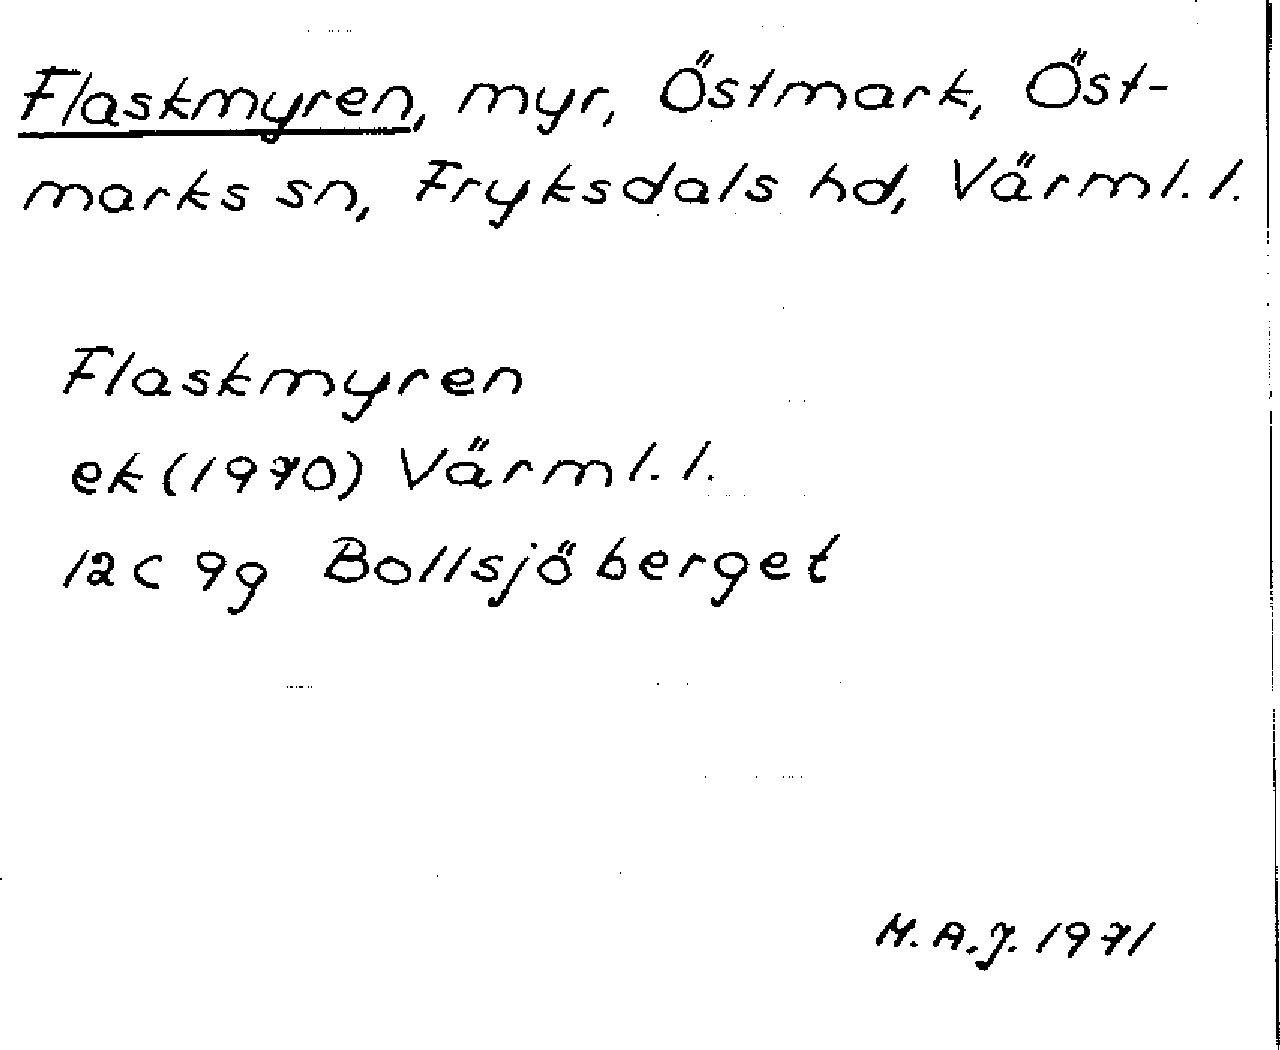 Flaskmyren, myr, Östmark, Öst-
marks sn, Fryksdals hd, Värml. l.
Flaskmyren
ek (1970) Värml. l.
12C 9g Bollsjöberget
M. A. J. 1971